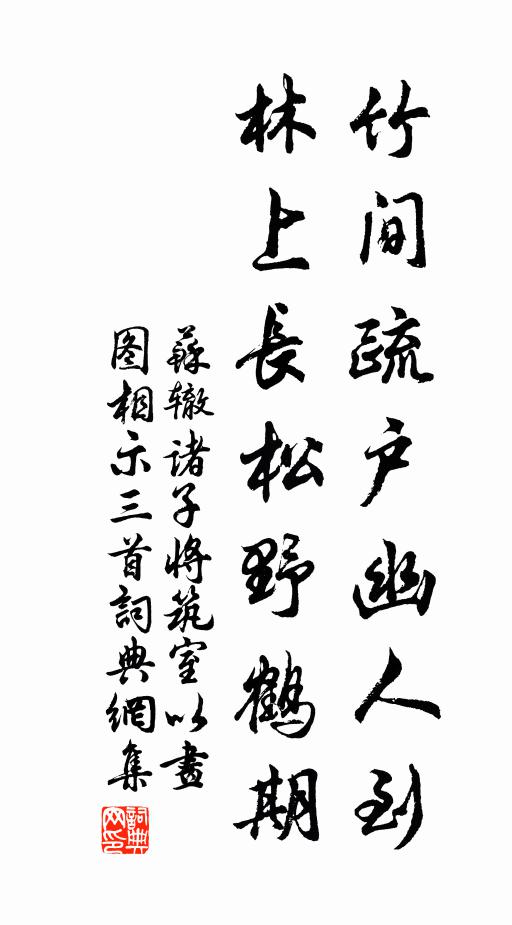 竹間疏户幽人到
林上長松野鶴期
蘇辙諸子將筑室以畫
图相示三首詞典網集
詞典
网印